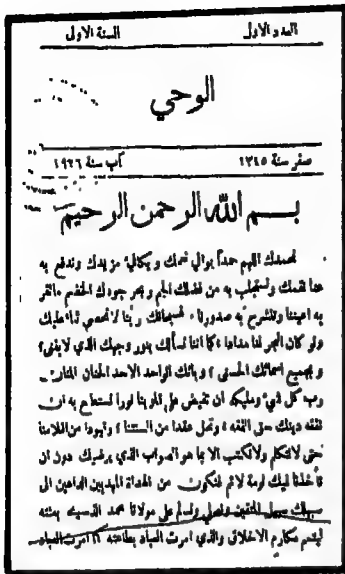 العدد الاول السنة الاول
الوحي
صفر سنة ١٣٤٥ آب سنة ١٩٢٦
بسم الله الرحمن الرحيم
نحمدك اللهم حمداً يوالي نعمك ويكافئ مزيدك وندفع به
عنا نقمك ونستجلب به من فضلك الجم وبحر جودك الخضم ماتقر
به اعيننا وتنشرح به صدورنا فسبحانك ربنا لا نحصي ثناء عليك
ولو كان البحر لنا مدادا، كما اننا نسألك بنور وجهك الذي لايفنى
وبجميع اسمائك الحسنى، وبانك الواحد الاحد الحنان المنان
رب كل شيء ومليكه ان تفيض على قلوبنا نورا نستطيع به ان
نفقه دينك حق الفقه، وتحل عقدا من السنتنا، وقيودا من اقلامنا
حتى لانتكلم ولانكتب الا بما هو الصواب الذي يرضيك دون ان
تأخذنا فيك لومة لائم فنكون من الهداة المهديين الداعين الى
سبيلك سبيل المتقين ونصلي ونسلم على مولانا محمد الذي بعثته
ليتمم مكارم الاخلاق والذي امرت العباد بطاعته